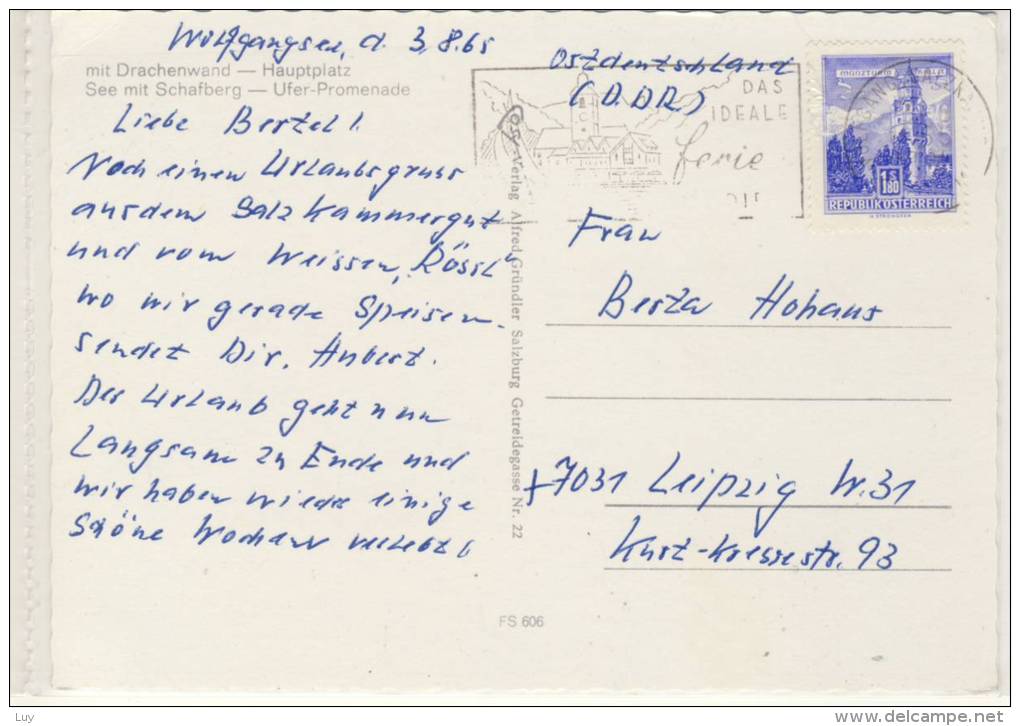 Wolfgangsee, d. 3.8.65
mit Drachenwand — Hauptplatz
See mit Schafberg — Ufer-Promenade
Liebe Bertel!
Noch einen Urlaubsgruss
aus dem Salzkammergut
und vom Weissen „Rössl"
wo wir gerade Speisen.
sendet Dir, Hubert.
Der Urlaub geht nun
Langsam zu Ende und
wir haben wieder einige
Schöne Wochen verlebt
Cosy-Verlag Alfred Gründler Salzburg Getreidegasse Nr. 22
FS 606
Ostdeutschland
(DDR)
DAS
IDEALE
ferie
MÜNZTURM HALL
S
1.80
REPUBLIK ÖSTERREICH
Frau
Berta Hohaus
7031 Leipzig W.31
Kurt-Kressestr. 93
Luy
delcampe.net